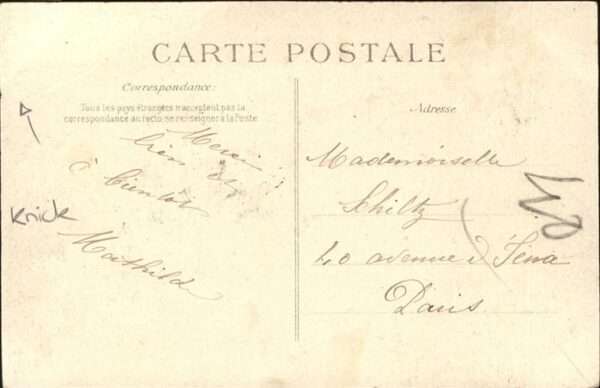 CARTE POSTALE
Correspondance:
Tous les pays étrangers n'acceptent pas la
correspondance au recto, se renseigner à la Poste
Merci
bien
à bientôt
Mathilde
Knick
Adresse
Mademoiselle
Schiltz
40 avenue d'Iéna
Paris